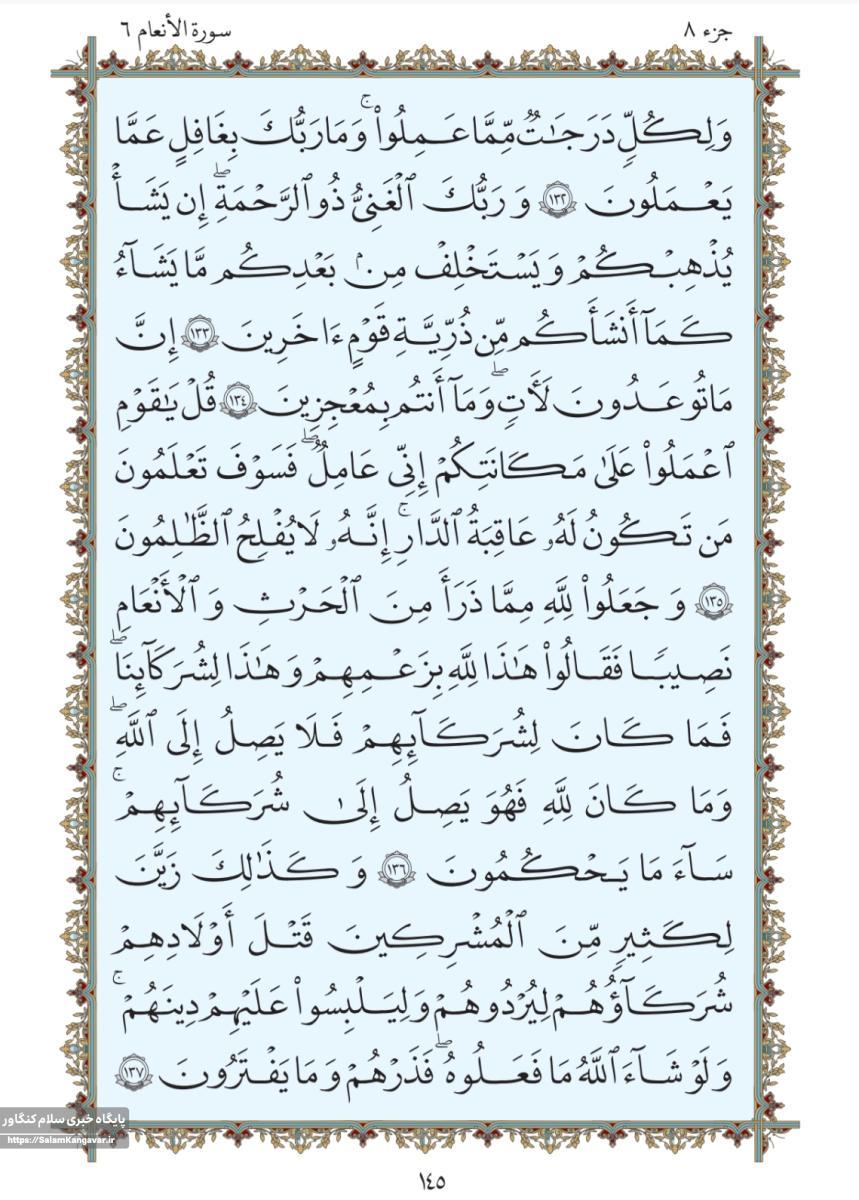 جزء ٨
سورة الأنعام ٦
وَلِكُلٍّ دَرَجَٰتٌ مِّمَّا عَمِلُوا۟ ۚ وَمَا رَبُّكَ بِغَٰفِلٍ عَمَّا
يَعْمَلُونَ ١٣٢ وَرَبُّكَ ٱلْغَنِىُّ ذُو ٱلرَّحْمَةِ ۖ إِن يَشَأْ
يُذْهِبْكُمْ وَيَسْتَخْلِفْ مِنۢ بَعْدِكُم مَّا يَشَآءُ
كَمَآ أَنشَأَكُم مِّن ذُرِّيَّةِ قَوْمٍ ءَاخَرِينَ ١٣٣ إِنَّ
مَا تُوعَدُونَ لَـَٔاتٍ ۖ وَمَآ أَنتُم بِمُعْجِزِينَ ١٣٤ قُلْ يَٰقَوْمِ
ٱعْمَلُوا۟ عَلَىٰ مَكَانَتِكُمْ إِنِّى عَامِلٌ ۖ فَسَوْفَ تَعْلَمُونَ
مَن تَكُونُ لَهُۥ عَٰقِبَةُ ٱلدَّارِ ۚ إِنَّهُۥ لَا يُفْلِحُ ٱلظَّٰلِمُونَ
١٣٥ وَجَعَلُوا۟ لِلَّهِ مِمَّا ذَرَأَ مِنَ ٱلْحَرْثِ وَٱلْأَنْعَٰمِ
نَصِيبًا فَقَالُوا۟ هَٰذَا لِلَّهِ بِزَعْمِهِمْ وَهَٰذَا لِشُرَكَآئِنَا ۖ
فَمَا كَانَ لِشُرَكَآئِهِمْ فَلَا يَصِلُ إِلَى ٱللَّهِ ۖ
وَمَا كَانَ لِلَّهِ فَهُوَ يَصِلُ إِلَىٰ شُرَكَآئِهِمْ ۗ
سَآءَ مَا يَحْكُمُونَ ١٣٦ وَكَذَٰلِكَ زَيَّنَ
لِكَثِيرٍ مِّنَ ٱلْمُشْرِكِينَ قَتْلَ أَوْلَٰدِهِمْ
شُرَكَآؤُهُمْ لِيُرْدُوهُمْ وَلِيَلْبِسُوا۟ عَلَيْهِمْ دِينَهُمْ ۖ
وَلَوْ شَآءَ ٱللَّهُ مَا فَعَلُوهُ ۖ فَذَرْهُمْ وَمَا يَفْتَرُونَ ١٣٧
پایگاه خبری سلام کنگاور
https://SalamKangavar.ir
١٤٥